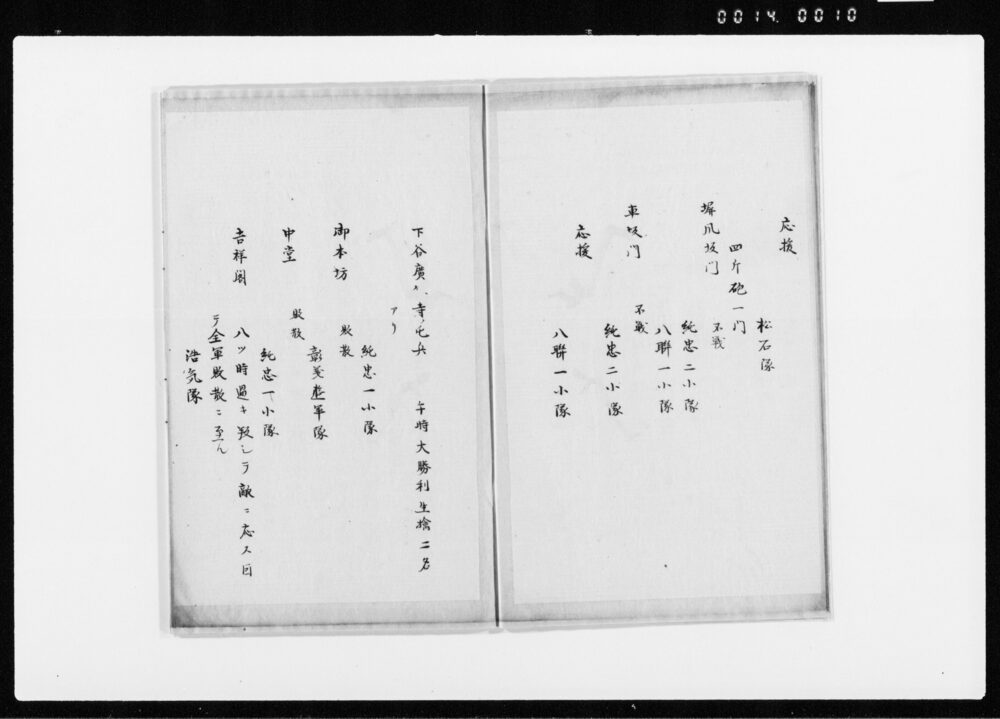 0014. 0010
応援
松石隊
四斤砲一門
屏風坂门
不戦
純忠二小隊
八聯一小隊
車坂门
不戦
純忠二小隊
応援
八聯一小隊
下谷廣小寺屯兵 午時大勝利生捡二名
アリ
純忠一小隊
御本坊
敗散
彰義遊軍隊
中堂
敗散
純忠一小隊
吉祥閣
八ツ時過キ
敵ニ応ス
テ全軍敗散ニ至ん
浩気隊